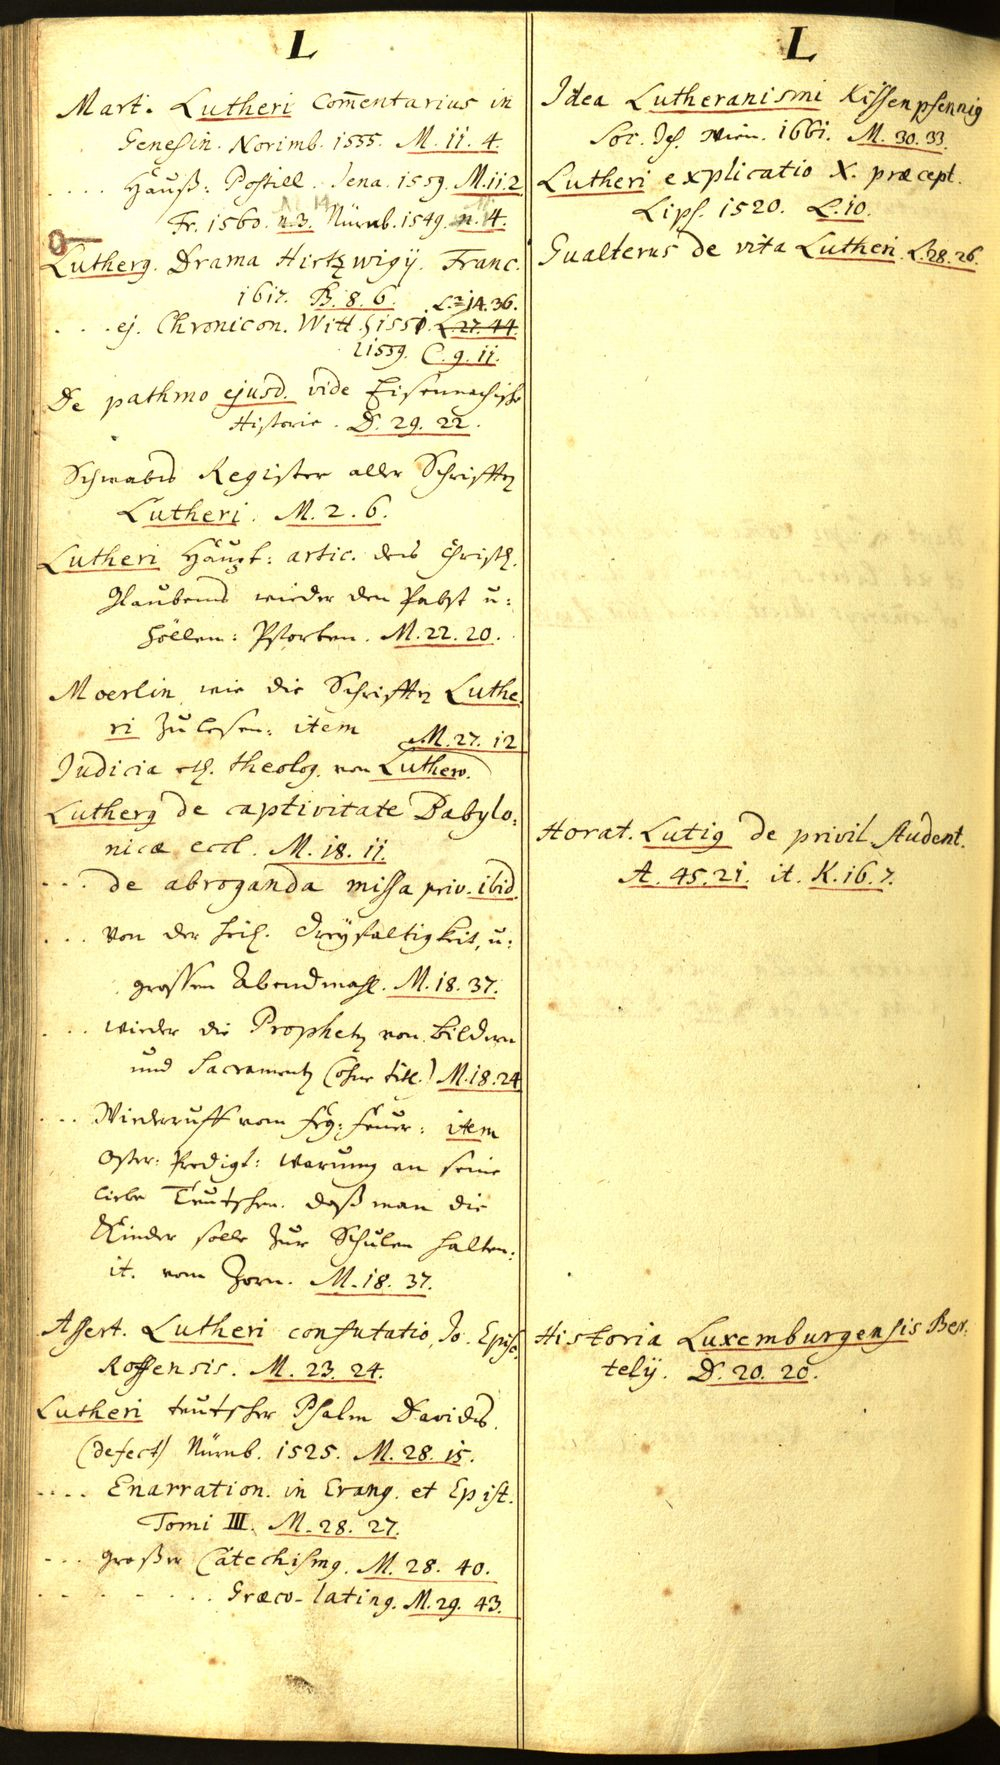 L
Mart. Lutheri Com̄entarius in
Genesin. Norimb. 1555. M. 11. 4.
.... Hauß: Postill. Jena. 1559. M. 11. 2
Fr. 1560. n. 3. Nürnb. 1549. n. 4.
Lutherg. Drama Hirtzwigij. Franc.
1617. B. 8. 6.
.... ej. Chronicon. Witt. 1551. L. 27. 44.
14. 36.
1559. C. 9. 11.
De pathmo ejusd. vide Eisenachische
Historie. D. 29. 22.
Schwabes Register aller Schrifften
Lutheri. M. 2. 6.
Lutheri Haupt: artic. des Christl.
Glaubens wieder den Pabst u:
Höllen: Pforten. M. 22. 20.
Moerlin wie die Schrifften Luthe
ri zu lesen: item M. 27. 12
Judicia etl. theolog. von Luthero.
Lutherg de captivitate Babylo:
nicæ eccl. M. 18. 11.
... de abroganda missa priv. ibid.
... von der heil. Dreyfaltigkeit, u:
grossen Abendmahl. M. 18. 37.
... wieder die Propheten von Bildern
und Sacramenten (ohne titl.) M. 18. 24
... Wiederruff vom Feg: Feuer: item
Oster: Predigt: Warnung an seine
liebe Teutschen. daß man die
Kinder solle zur Schulen halten:
it. vom Zorn. M. 18. 37.
Assert. Lutheri confutatio, Jo. Episc.
Roffensis. M. 23. 24.
Lutheri teutscher Psalm Davids.
(defect) Nürnb. 1525. M. 28. 15.
.... Enarration. in Evang. et Epist.
Tomi III. M. 28. 27.
... großer Catechismg. M. 28. 40.
Græco-lating. M. 29. 43.
L
Idea Lutheranismi Kissenpfennig
Soc. Jes. Wien. 1661. M. 30. 33.
Lutheri explicatio X. præcept.
Lips. 1520. L. 10.
Gualterus de vita Lutheri. L. 28. 26.
Horat. Lutig de privil. Student.
A. 45. 21. it. K. 16. 7.
Historia Luxemburgensis Ber:
telij. D. 20. 20.